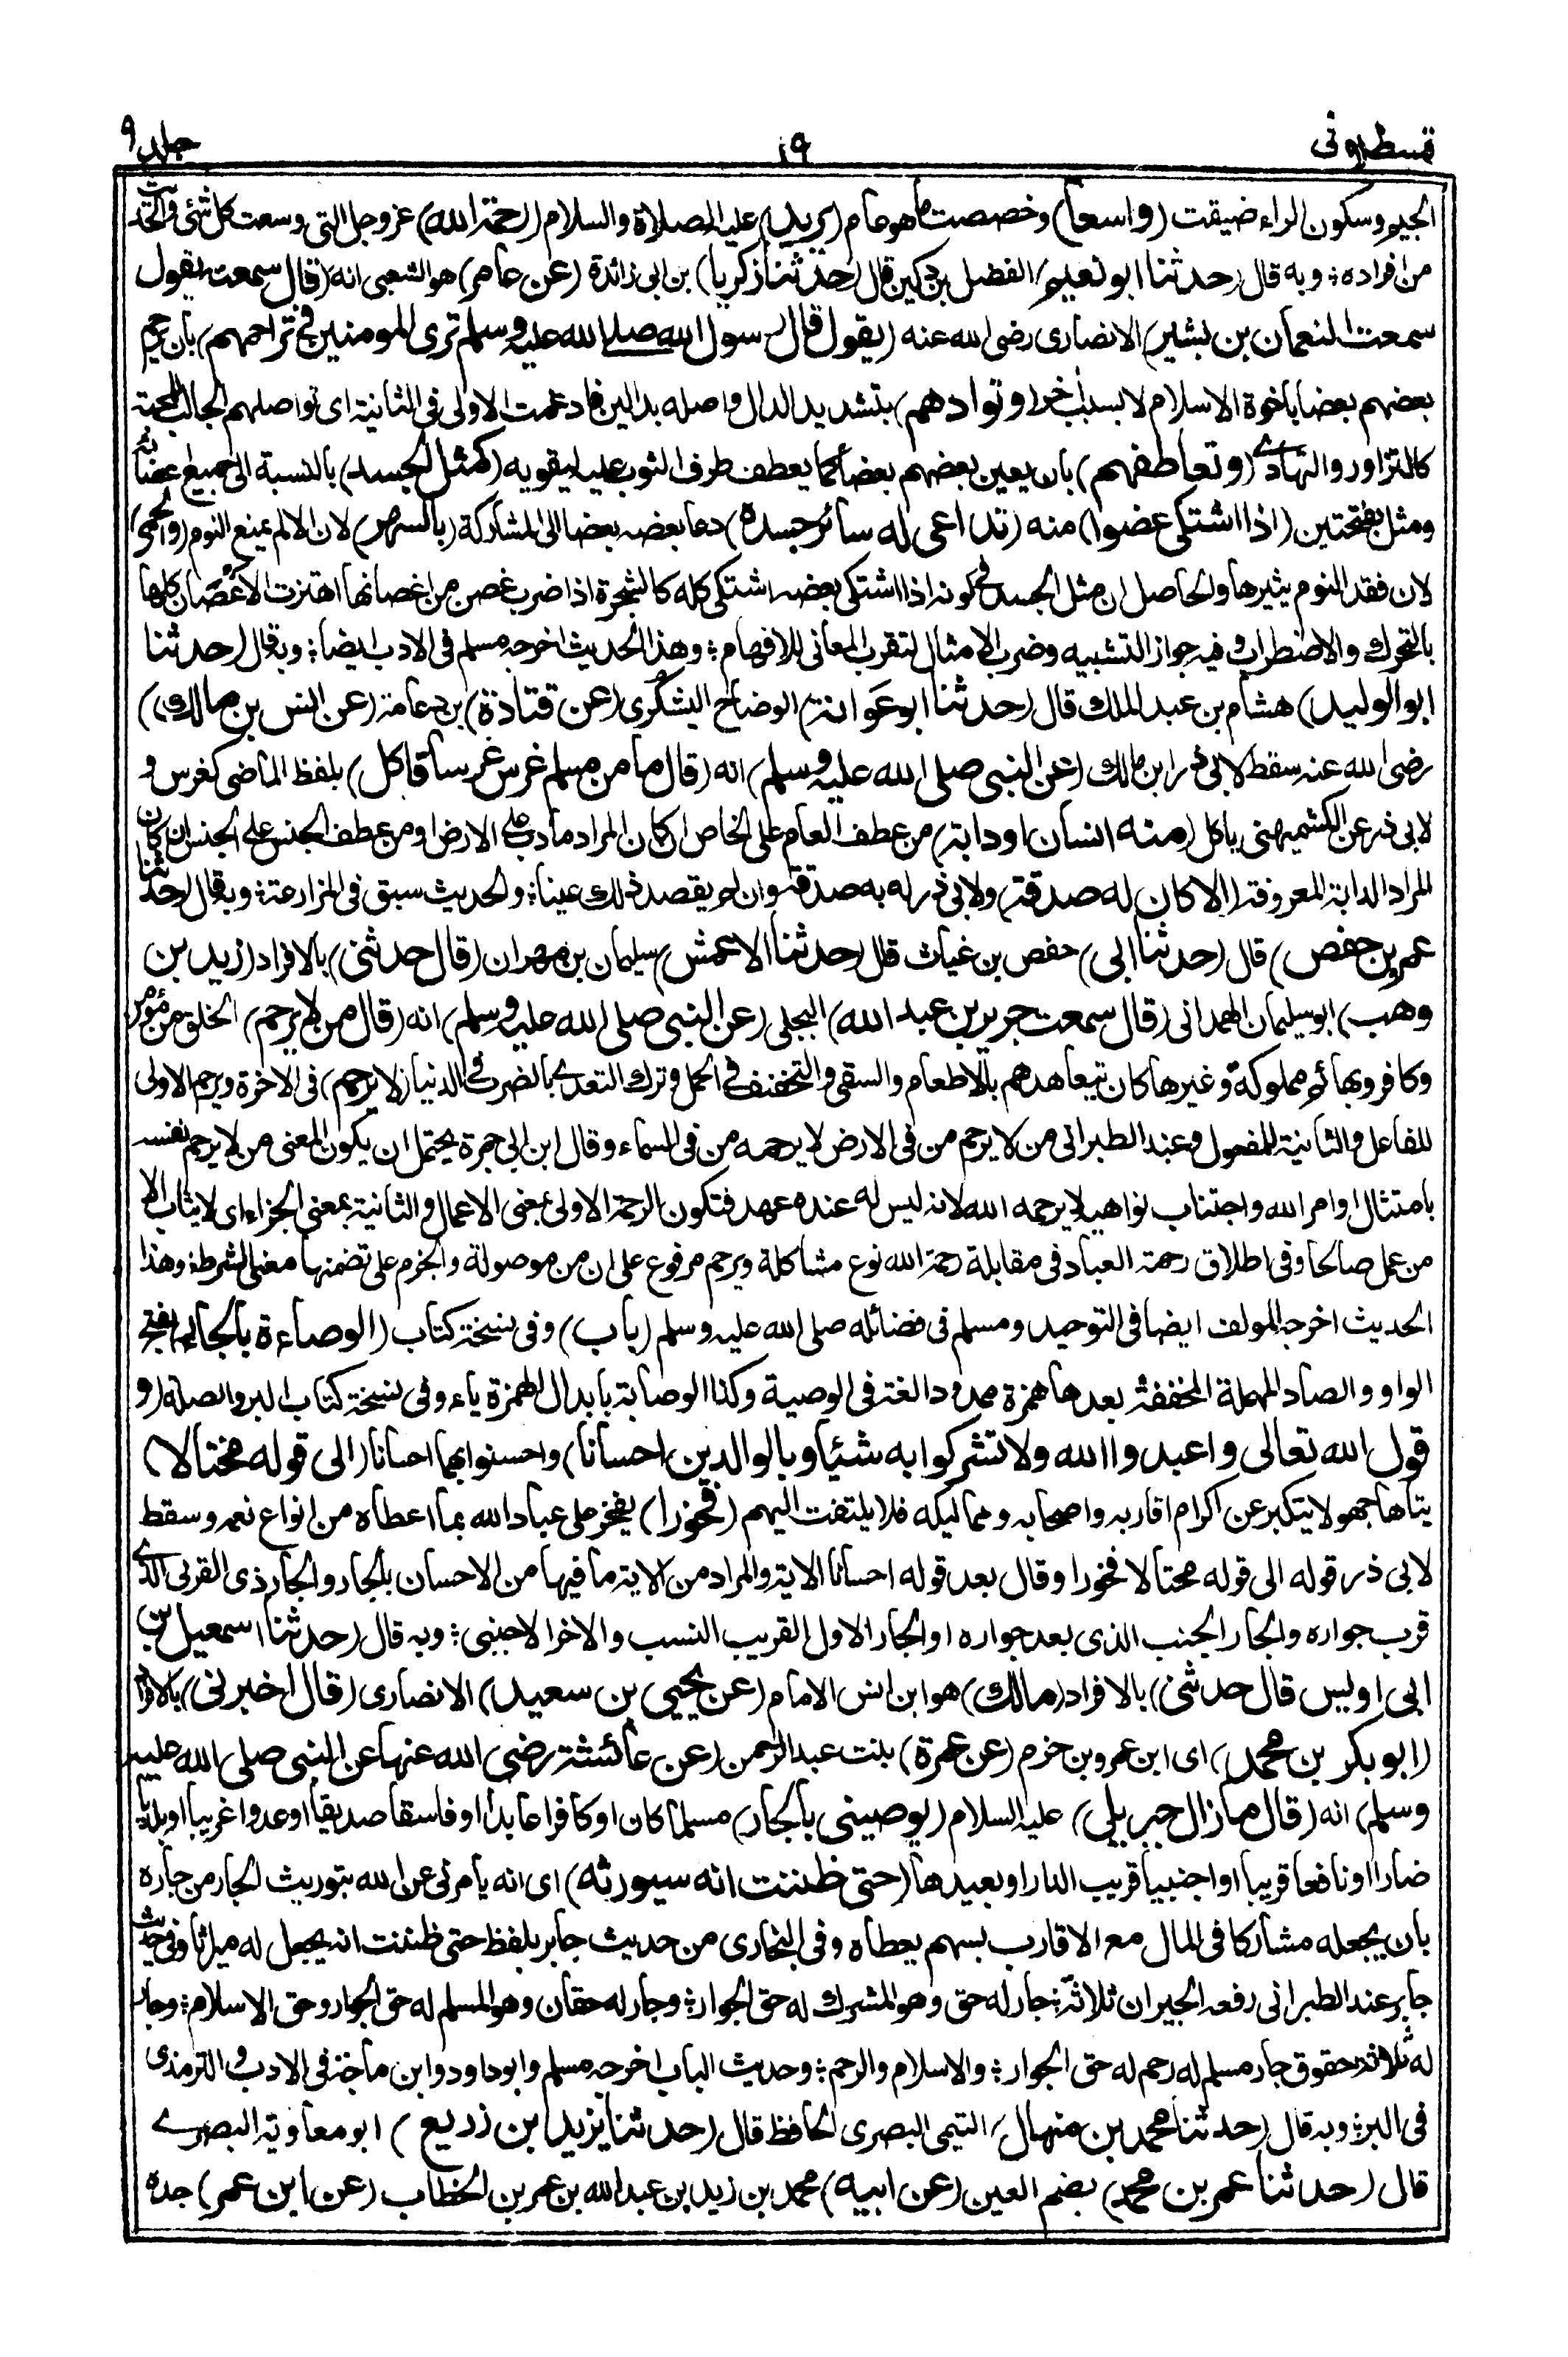 قسطلانی ١٩ جلد ٩
الجيم وسكون الراء ضيقت (واسعا) وخصصت ما هو عام (يريد) عليه الصلاة والسلام (رحمة الله) عز وجل التى وسعت كل شئ والحديث
من افراده ؛ وبه قال (حدثنا ابو نعيم) الفضل بن دكين قال (حدثنا زكريا) بن ابى زائدة (عن عامر) هو الشعبى انه (قال سمعته يقول
سمعت النعمان بن بشير) الانصارى رضى الله عنه (يقول قال رسول الله صلے الله عليه وسلم ترى المومنين فى تراحمهم) بان يرحم
بعضهم بعضا باخوة الاسلام لا بسبب اخر (وتوادهم) بتشديد الدال واصله بدالين فادغمت الاولى فى الثانية اى تواصلهم الجالب المحبة
كالتزاور والتهادے (وتعاطفهم) بان يعين بعضهم بعضا كما يعطف طرف الثوب عليه ليقويه (كمثل الجسد) بالنسبة الى جميع اعضائه
ومثل بفتحتين (اذا اشتكى عضوا) منه (تداعى له سائر جسده) دعا بعضه بعضا الى المشاركة (بالسهر) لان الالم يمنع النوم (والحمى)
لان فقد النوم يثيرها والحاصل ان مثل الجسد فى كونه اذا اشتكى بعضه اشتكى كله كالشجرة اذا ضرب غصن من اغصانها اهتزت الاغصان كلها
بالتحرك والاضطراب وفيه جواز التشبيه وضرب الامثال لتقرب المعانى للافهام ؛ وهذا الحديث اخرجه مسلم فى الادب ايضا ؛ وبه قال (حدثنا
ابو الوليد) هشام بن عبد الملك قال (حدثنا ابو عوانة) الوضاح اليشكرى (عن قتادة) بن دعامة (عن انس بن مالك)
رضى الله عنه سقط لابى ذر ابن مالك (عن النبى صلى الله عليه وسلم) انه (قال ما من مسلم غرس غرسا فاكل) بلفظ الماضى كغرس و
لابى ذر عن الكشميهنى ياكل (منه انسان او دابة) من عطف العام على الخاص ان كان المراد ما دب على الارض او من عطف الجنس على الجنس ان كان
المراد الدابة المعروفة (الا كان له صدقة) ولابى ذر له به صدقة وان لم يقصد ذلك عينا ؛ والحديث سبق فى المزارعة ؛ وبه قال (حدثنا
عمر بن حفص) قال (حدثنا ابى) حفص بن غياث قال (حدثنا الاعمش) سليمان بن مهران (قال حدثنى) بالافراد (زيد بن
وهب) ابو سليمان الهمدانى (قال سمعت جرير بن عبد الله) البجلى (عن النبى صلى الله عليه وسلم) انه (قال من لا يرحم) الخلق من مؤمن
وكافر وبهائم مملوكة وغيرها كان يتعاهدهم بالاطعام والسقى والتخفيف فى الحمل وترك التعدے بالضرب فى الدنيا (لا يرحم) فى الاخرة ويرحم الاولى
للفاعل والثانية للمفعول وعند الطبرانى من لا يرحم من فى الارض لا يرحمه من فى السماء وقال ابن ابى جمرة يحتمل ان يكون المعنى من لا يرحم نفسه
بامتثال اوامر الله واجتناب نواهيه لا يرحمه الله لانه ليس له عنده عهد فتكون الرحمة الاولى بمعنى الاعمال والثانية بمعنى الجزاء اى لا يثاب الا
من عمل صالحا وفى اطلاق رحمة العباد فى مقابلة رحمة الله نوع مشاكلة ويرحم مرفوع على ان من موصولة والجزم على تضمنها معنى الشرط ؛ وهذا
الحديث اخرجه المولف ايضا فى التوحيد ومسلم فى فضائله صلى الله عليه وسلم (باب) وفى نسخة كتاب (الوصاءة بالجار) بفتح
الواو والصاد المهملة المخففة بعدها همزة ممدودا لغة فى الوصية وكذا الوصاية بابدال الهمزة ياء وفى نسخة كتاب البر والصلة (و
قول الله تعالى واعبدوا الله ولا تشركوا به شيئا وبالوالدين احسانا) واحسنوا بهما احسانا (الى قوله مختالا)
يتاها جهولا يتكبر عن اكرام اقاربه واصحابه ومماليكه فلا يلتفت اليهم (فخورا) يفخر على عباد الله بما اعطاه من انواع نعمه وسقط
لابى ذر قوله الى قوله مختالا فخورا وقال بعد قوله احسانا الاية والمراد من الاية ما فيها من الاحسان بالجار والجار ذى القربى الذے
قرب جواره والجار الجنب الذى بعد جواره او الجار الاول القريب النسب والاخر الاجنبى ؛ وبه قال (حدثنا اسمعيل بن
ابى اويس قال حدثنى) بالافراد (مالك) هو ابن انس الامام (عن يحيى بن سعيد) الانصارى (قال اخبرنى) بالافراد
(ابو بكر بن محمد) اى ابن عمرو بن حزم (عن عمرة) بنت عبد الرحمن (عن عائشة رضى الله عنها عن النبى صلى الله عليه
وسلم) انه (قال ما زال جبريل) عليه السلام (يوصينى بالجار) مسلما كان او كافرا عابدا او فاسقا صديقا او عدوا غريبا او بلديا
ضارا او نافعا قريبا او اجنبيا قريب الدار او بعيدها (حتى ظننت انه سيورثه) اى انه يامرنى عن الله بتوريث الجار من جاره
بان يجعله مشاركا فى المال مع الاقارب بسهم يعطاه وفى البخارى من حديث جابر بلفظ حتى ظننت انه يجعل له ميراثا وفى حديث
جابر عند الطبرانى رفعه الجيران ثلاثة ؛ جار له حق وهو المشرك له حق الجوار ؛ وجار له حقان وهو المسلم له حق الجوار وحق الاسلام ؛ وجار
له ثلاثة حقوق جار مسلم له رحم له حق الجوار ؛ والاسلام والرحم ؛ وحديث الباب اخرجه مسلم وابو داود وابن ماجة فى الادب و الترمذى
فى البر ؛ وبه قال (حدثنا محمد بن منهال) التيمى البصرى الحافظ قال (حدثنا يزيد بن زريع) ابو معاوية البصرے
قال (حدثنا عمر بن محمد) بضم العين (عن ابيه) محمد بن زيد بن عبد الله بن عمر بن الخطاب (عن ابن عمر) جده